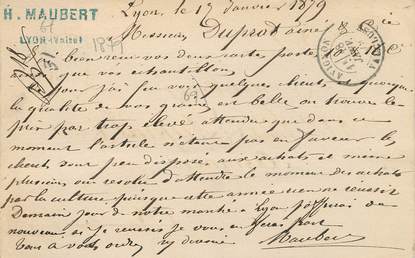 H. MAUBERT
LYON (Vaise)
Lyon, le 17 Janvier 1879
Messieurs Duprat ainé & Cie
1879
bien reçu vos deux cartes postales
que vos échantillons
pour j'ai fait voir quelques clients quoique
la qualité de vos graines est belle on trouve le
prix par trop élevé attendu que dans ce
moment l'article n'étant pas en faveur les
clients sont peu disposés aux achats et même
plusieurs ont résolu d'attendre le moment des achats
par la culture, puisque cette année rien ne réussit
Demain jour de notre marché à Lyon j'offrirai de
nouveau si je réussis je vous en ferai part
Tout à vos ordres dévoué
Maubert